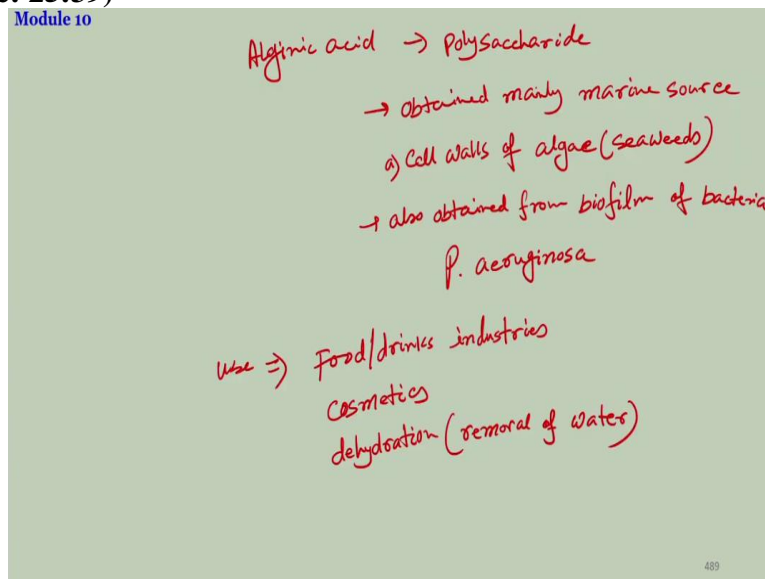 Module 10
Alginic acid → Polysaccharide
→ obtained mainly marine source
a) Cell walls of algae (seaweeds)
→ also obtained from biofilm of bacteria
P. aeruginosa
Use ⇒ Food/drinks industries
Cosmetics
dehydration (removal of water)
489